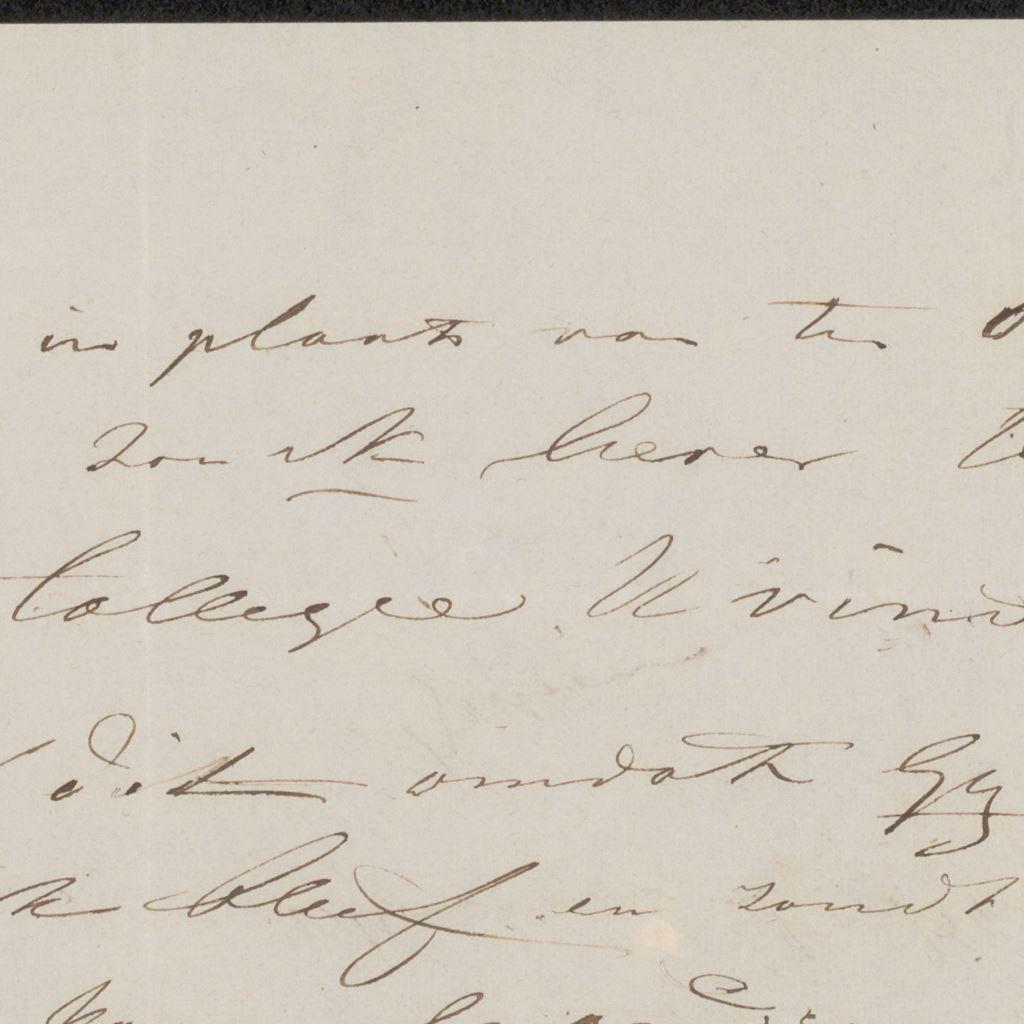 in plaats van te
zou ik liever
Collegie U vind
dit omdat Gy
bleef en zondt